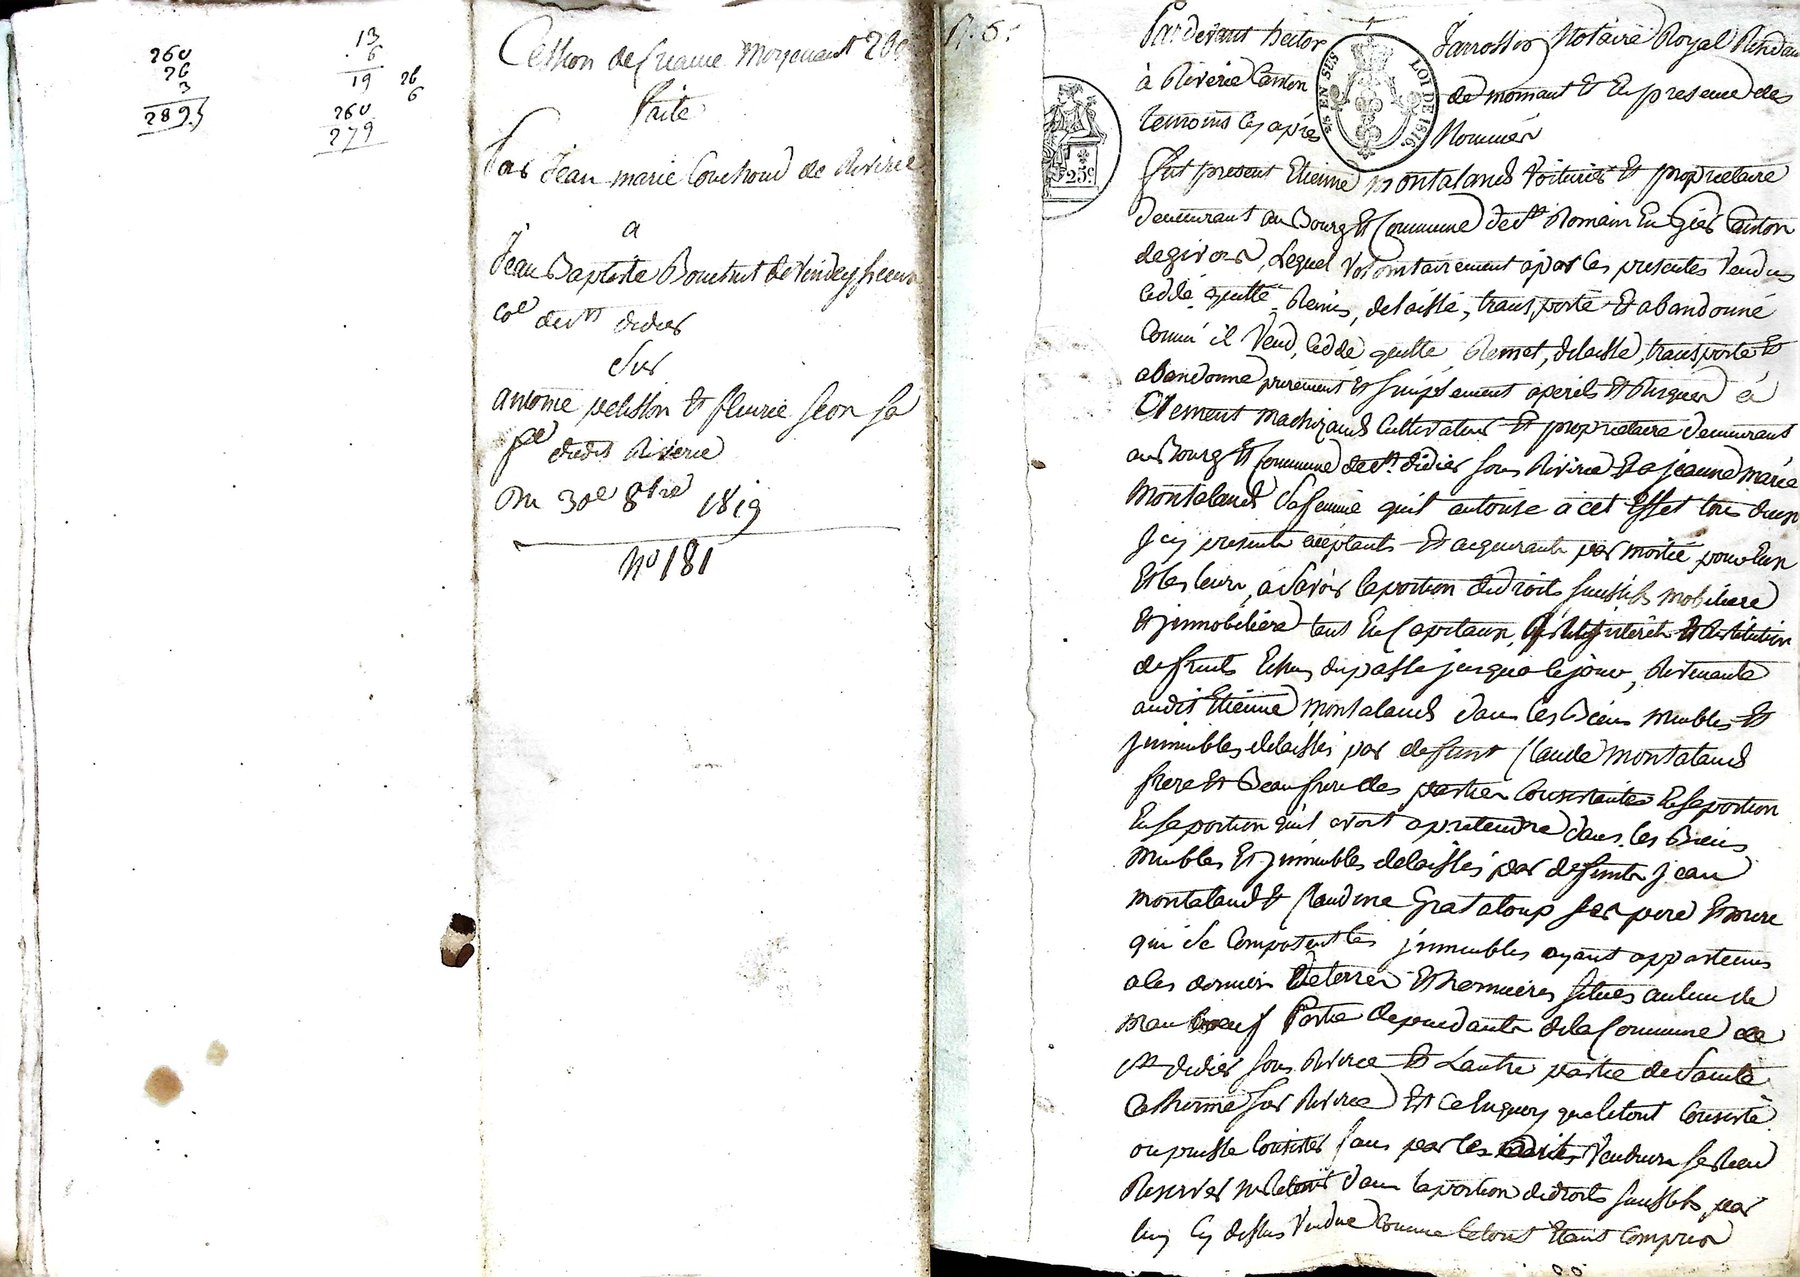 260
26
3
289.5
13
6
19
260
279
26
6
Cession de Creance Moyenant 260
faite
Par Jean marie Couchoud de Riverie
a
Jean Baptiste Bouchut de
Coe de st didier
Sur
antoine pelisson et fleurie Séon sa
fe dudit Riverie
Du 30e 8bre 1819
No 181
N. 6.
25c
EN SUS
LOI DE 1816.
Pardevant hector Jarrosson Notaire Royal Residant
à Riverie Canton de mornant Et En presence des
temoins cy après Nommés
fut present Etienne montaland Voiturier Et propriétaire
demeurant au Bourg Et Commune de st Romain En Gier Canton
de givors, Lequel Volontairement a par les presentes Vendus
Ceddé quitté Remis, delaissé, transporté Et abandonné
Comm' il Vend, Cedde quitte, Remet, delaisse, transporte Et
abandonne purement Et simplement aperils Et Risques à
Clement Machizaud Cultivateur Et propriétaire demeurant
au Bourg Et Commune de st. didier sous Riverie Et a jeanne marie
Montaland sa femme quil autorise a cet Effet tous deux
Jcy presents acceptants Et acquerants par moitié pour Eux
Et les leurs, a Savoir la portion de droits successifs mobiliers
Et jmmobiliers tant En Capitaux, interets Et Restitution
de fruits Echus du passé jusqua ce jour, Revenants
audit Etienne Montaland dans les Biens meubles Et
jmmeubles delaissés par defunt Claude Montaland
frere Et Beau frere des parties Contractantes En sa portion
En sa portion quil avoit apretendre dans les Biens
Meubles Et jmmeubles delaissés par defunts jean
montaland Et Claudine Grataloup ses pere Et mere
qui se Composent les jmmeubles ayant appartenus
a ces derniers De terres Et hermières situés au lieu de
Mauboeuf Partie dependante de la Commune de
st didier sous Riverie Et Lautre partie de Sainte
Catherine sur Riverie Et en quoy que le tout Consiste
ou puisse Consister sans par les Vendeur se rien
Reserver ni Retenir dans la portion de droits successifs par
luy Cy dessus Vendue Comme le tout Etant Compris